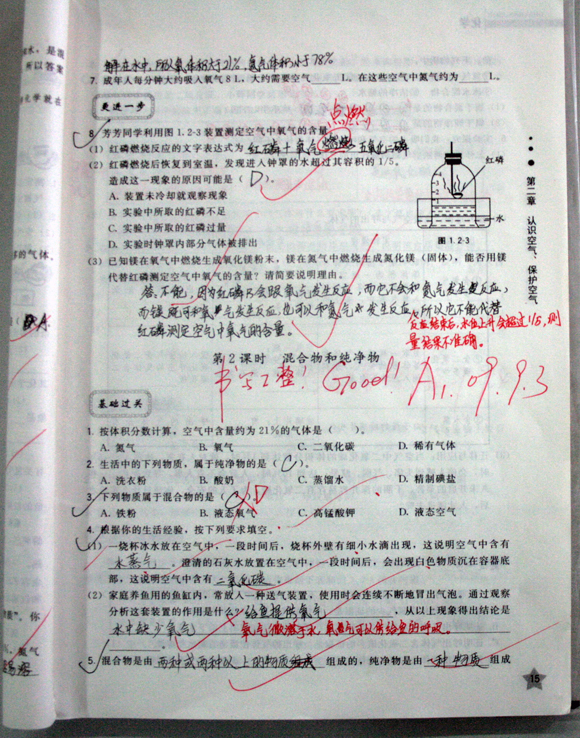 解在水中,所以氧体积大于21%,氮气体积小于78%
7. 成年人每分钟大约吸人氧气8L,大约需要空气 L,在这些空气中氮气约为 L。
更进一步
点燃
8. 芳芳同学利用图1.2-3装置测定空气中氧气的含量
(1) 红磷燃烧反应的文字表达式为 红磷+氧气 燃烧 五氧化二磷
(2) 红磷燃烧后恢复到室温,发现进人钟罩的水超过其容积的1/5。
造成这一现象的原因可能是( D )。
A. 装置未冷却就观察现象
B. 实验中所取的红磷不足
C. 实验中所取的红磷过量
D. 实验时钟罩内部分气体被排出
红磷
水
图 1.2-3
(3) 已知镁在氧气中燃烧生成氧化镁粉末,镁在氮气中燃烧生成氮化镁(固体),能否用镁
代替红磷测定空气中氧气的含量?请简要说明理由。
答:不能,因为红磷只会跟氧气发生反应,而它不会和氮气发生反应,
而镁既可和氧气发生反应,也可以和氮气发生反应,所以它不能代替
红磷测定空气中氧气的含量。
反应结束后,水面上升会超过1/5,测
量结果不准确。
第2课时 混合物和纯净物
书写工整! Good! A1. 09.9.3
基础过关
1. 按体积分数计算,空气中含量约为21%的气体是( )。
A. 氮气 B. 氧气 C. 二氧化碳 D. 稀有气体
2. 生活中的下列物质,属于纯净物的是( C )。
A. 洗衣粉 B. 酸奶 C. 蒸馏水 D. 精制碘盐
3. 下列物质属于混合物的是( C )D
A. 铁粉 B. 液态氧气 C. 高锰酸钾 D. 液态空气
4. 根据你的生活经验,按下列要求填空。
(1) 一烧杯冰水放在空气中,一段时间后,烧杯外壁有细小水滴出现,这说明空气中含有
水蒸气 。澄清的石灰水放置在空气中,一段时间后,会出现白色物质沉在容器底
部,这说明空气中含有 二氧化碳 。
(2) 家庭养鱼用的鱼缸内,常放人一种送气装置,使用时会连续不断地冒出气泡。通过观察
分析这套装置的作用是什么? 给鱼提供氧气 ,从以上现象得出结论是
水中缺少氧气 氧气微溶于水,氧气可以供给鱼的呼吸。
5. 混合物是由 两种或两种以上的物质 组成的,纯净物是由 一种物质 组成
第二章 认识空气、保护空气
15